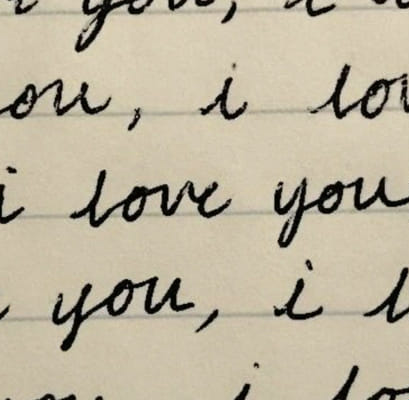 you, i
ou, i lov
i love you
you, i l
i lo